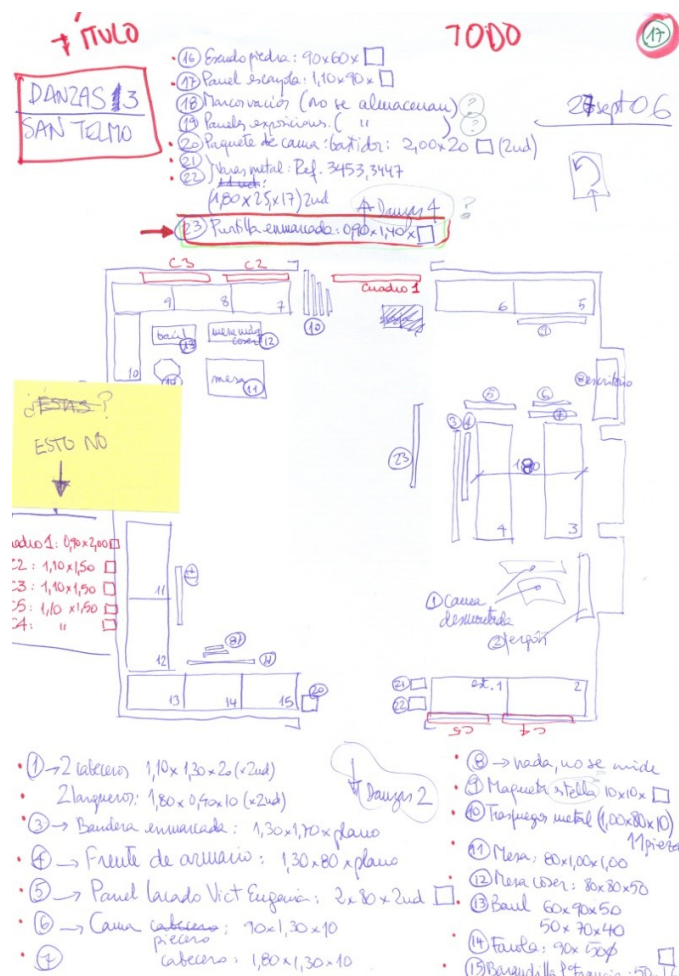 TÍTULO
TODO
17
DANZAS 3
SAN TELMO
27 sept 06
16 Escudo piedra: 90x60x
17 Panel escayola: 1,10x90x
18 Marcos vacíos (no se almacenan) ?
19 Paneles exposicions. ( " ) ?
20 Paquete de cama: bastidor: 2,00x20 (2ud)
21
22 Varas metal: Ref. 3453, 3447
(1,80x25x17) 2ud
Danzas 4 ?
23 Puntilla enmarcada: 0,90x1,40x
C3 C2 Cuadro 1
9 8 7 10 6 5
9
baul 13
mesa máq. coser 12
10
14
mesa 11
8 escritorio
¿ESTAS?
ESTO NO
5 6 7
3 4
23
1,80
4 3
Cuadro 1: 0,90x2,00
C2: 1,10x1,50
C3: 1,10x1,50
C5: 1,10x1,50
C4: "
11
12
1 Cama desmontada
2 jergón
13 14 15 20
21
22
est. 1 2
C5 C4
1 → 2 cabeceros 1,10x1,30x20 (x2ud)
2 largueros: 1,80x0,40x10 (x2ud)
3 → Bandera enmarcada: 1,30x1,70xplano
4 → Frente de armario: 1,30x80xplano
5 → Panel lacado Vict Eugenia: 2x80x2ud
6 → Cama cabecero: 90x1,30x10
piecero
7 cabecero: 1,80x1,30x10
Danzas 2
8 → nada, no se mide
9 Maqueta stella 10x10x
10 Traspuegos metal (1,00x80x10)
11 piezas
11 Mesa: 80x1,00x1,00
12 Mesa coser: 80x80x50
13 Baul 60x90x50
50x70x40
14 Farola: 90x50ø
15 Barandilla